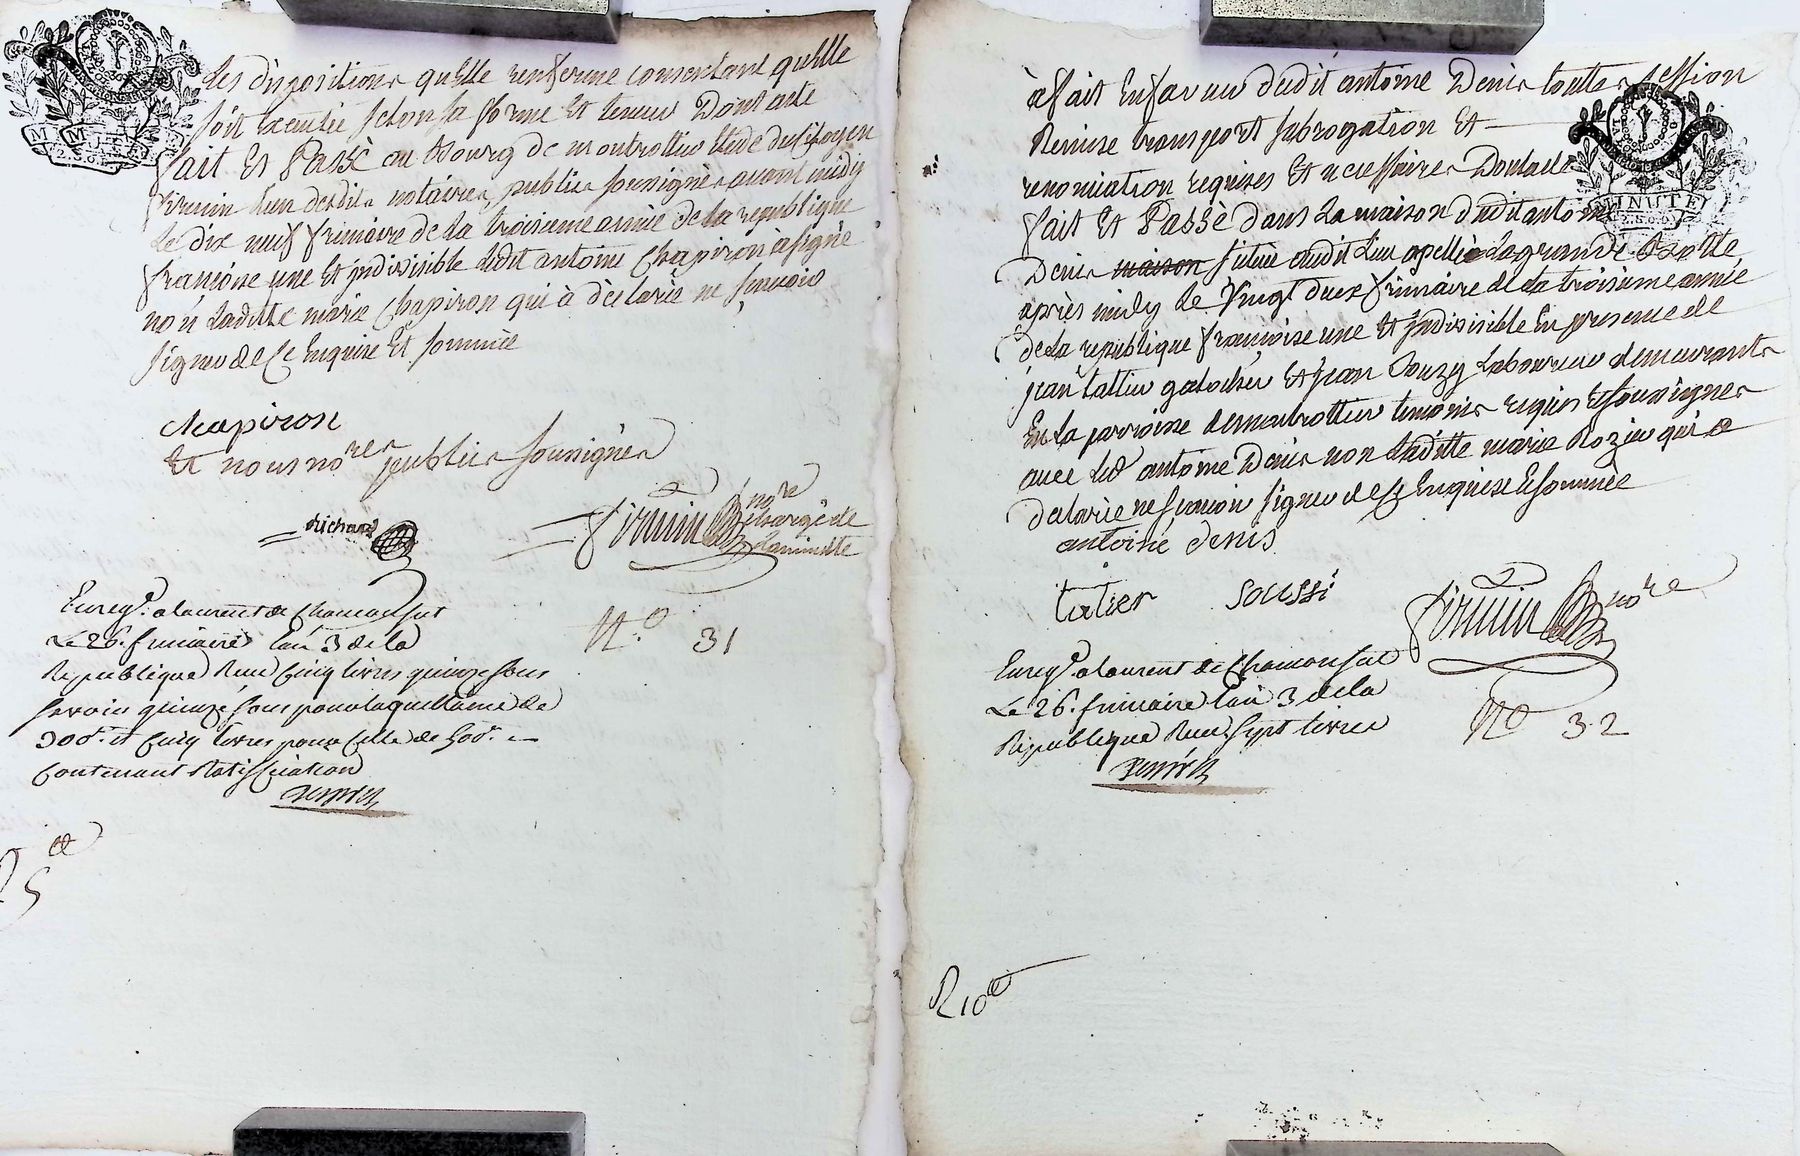 les dispositions qu'Elle renferme consentant qu'Elle
soit Executée selon sa forme Et teneur Dont acte
fait Et Passé au Bourg de montrottier Etude du Citoyen
firmin l'un desdits notaires publics soussignés avant midy
Le dix neuf frimaire de La troisieme année de La republique
françoise une Et jndivisible ledit antoine Chapiron à signé
non Laditte marie Chapiron qui à déclaré ne sçavoir
signer de Ce Enquise Et sommée
chapiron
Et nous nores publics soussignés
Richard
firmin nore
chargé de
La minutte
Enregé. a laurent de Chamousset
Le 26. frimaire l'an 3 de la
Republique Reçu Cinq livres quinze sous
savoir quinze sous pour la quittance de
300# et Cinq livres pour Celle de 500#
Contenant Ratiffication
No 31
MINUTE
à fait En faveur dudit antoine Denis toutes Cession
Remise transport subrogation Et
renonciation requises Et necessaires Dont acte
fait Et Passé dans La maison dudit antoine
Denis maison située audit lieu apellée La grande
après midy Le vingt deux frimaire de La troisieme année
de La republique françoise une Et jndivisible En presence de
jean tattier galochier Et jean Laboureur demeurants
En La parroisse de montrottier temoins requis Et soussignés
avec led antoine Denis non Laditte marie Rozier qui a
declarée ne sçavoir signer de Ce Enquise Et sommée
antoine denis
tatier soussi firmin nore
Enregé a laurent de Chamousset
Le 26. frimaire l'an 3 de la
Republique Reçu Sept livres
No 32
MINUTE
R 10